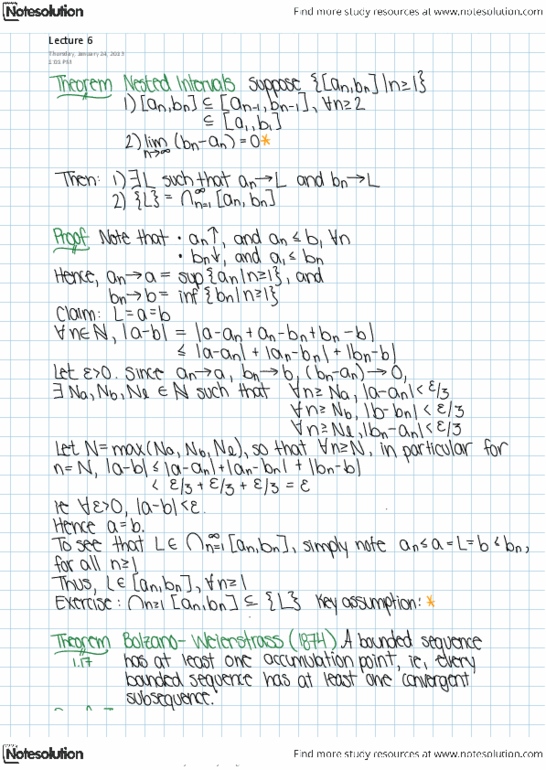 Notesolution
Find more study resources at www.notesolution.com
Lecture 6
Thursday, January 24, 2013
1:03 PM
Theorem Nested Intervals suppose {[an,bn]|n≥1}
1) [an,bn] ⊆ [an-1,bn-1], ∀n≥2
⊆ [a1,b1]
2) lim n→∞ (bn-an) = 0*
Then: 1) ∃L such that an→L and bn→L
2) {L} = ∩∞n=1 [an,bn]
Proof Note that • an↑, and an ≤ b1 ∀n
• bn↓, and a1 ≤ bn
Hence, an→a = sup{an|n≥1}, and
bn→b = inf{bn|n≥1}
Claim: L=a=b
∀n∈ℕ, |a-b| = |a-an+an-bn+bn-b|
≤ |a-an| + |an-bn| + |bn-b|
Let ε>0. Since an→a, bn→b, (bn-an)→0,
∃ Na, Nb, Nl ∈ ℕ such that ∀n≥Na, |a-an| < ε/3
∀n≥Nb, |b-bn| < ε/3
∀n≥Nl, |bn-an| < ε/3
Let N=max(Na, Nb, Nl), so that ∀n≥N, in particular for
n=N, |a-b| ≤ |a-an|+|an-bn| + |bn-b|
< ε/3 + ε/3 + ε/3 = ε
ie ∀ε>0, |a-b|<ε.
Hence a=b.
To see that L∈ ∩∞n=1 [an,bn], simply note an≤a=L=b≤bn,
for all n≥1
Thus, L∈[an,bn], ∀n≥1
Exercise: ∩n≥1 [an,bn] ⊆ {L} Key assumption: *
Theorem Bolzano-Weierstrass (1874) A bounded sequence
1.17 has at least one accumulation point, ie, every
bounded sequence has at least one convergent
subsequence.
Notesolution
Find more study resources at www.notesolution.com